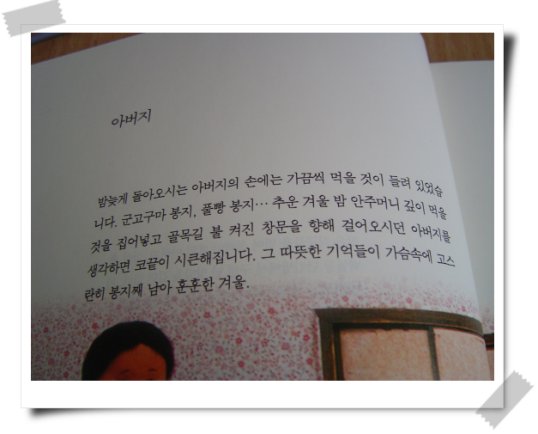 아버지
밤늦게 돌아오시는 아버지의 손에는 가끔씩 먹을 것이 들려 있었습
니다. 군고구마 봉지, 풀빵 봉지… 추운 겨울 밤 안주머니 깊이 먹을
것을 집어넣고 골목길 불 켜진 창문을 향해 걸어오시던 아버지를
생각하면 코끝이 시큰해집니다. 그 따뜻한 기억들이 가슴속에 고스
란히 봉지째 남아 훈훈한 겨울.